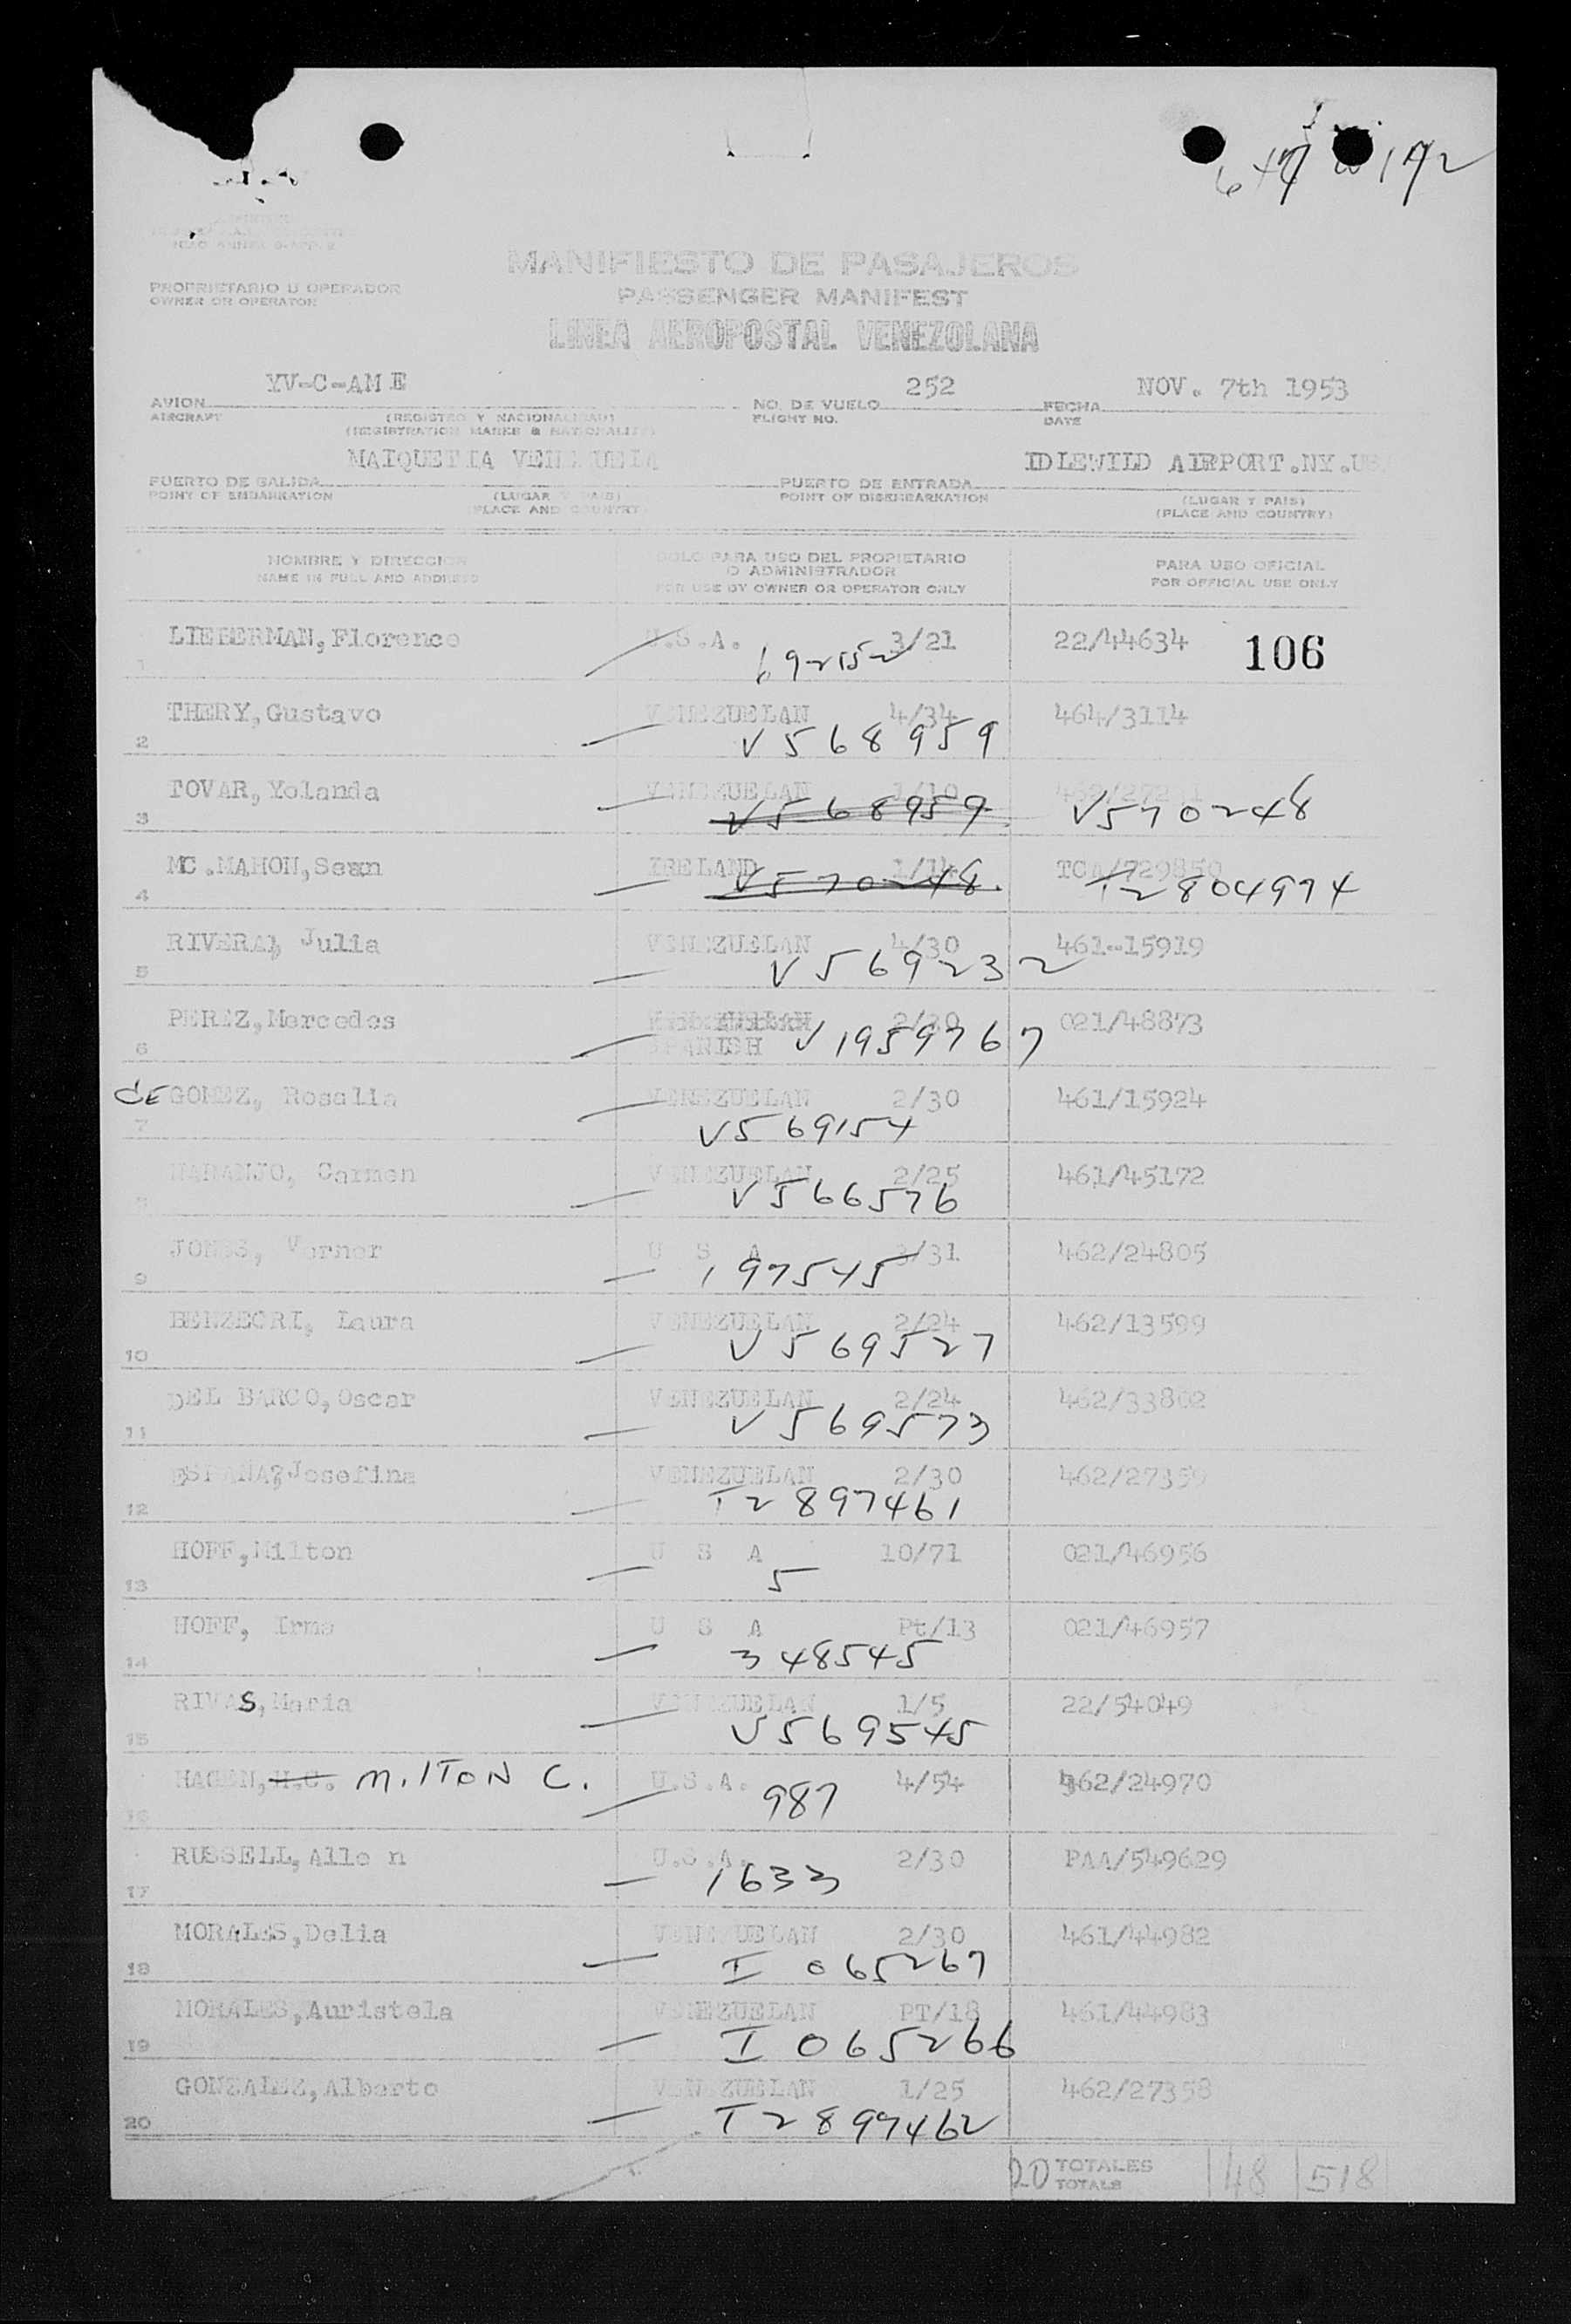 MANIFIESTO DE PASAJEROS
PROPRIETARIO U OPERADOR
OWNER OR OPERATOR
PASSENGER MANIFEST
LINEA AEROPOSTAL VENEZOLANA
YV-C-AME 252 NOV. 7th 1953
AVION NO. DE VUELO FECHA
AIRCRAFT (REGISTRO Y NACIONALIDAD) FLIGHT NO. DATE
(REGISTRATION MARKS & NATIONALITY)
MAIQUETIA VENEZUELA IDLEWILD AIRPORT.NY.US
PUERTO DE SALIDA PUERTO DE ENTRADA
POINT OF EMBARKATION (LUGAR Y PAIS) POINT OF DISEMBARKATION (LUGAR Y PAIS)
(PLACE AND COUNTRY) (PLACE AND COUNTRY)
NOMBRE Y DIRECCION SOLO PARA USO DEL PROPIETARIO PARA USO OFICIAL
O ADMINISTRADOR
NAME IN FULL AND ADDRESS FOR USE BY OWNER OR OPERATOR ONLY FOR OFFICIAL USE ONLY
LIEBERMAN, Florence U.S.A. 3/21 22/44634 106
1 692152
THERY, Gustavo VENEZUELAN 4/34 464/3114
2 V568959
TOVAR, Yolanda VENEZUELAN 1/10
3 V568959 V570248
MC.MAHON, Sean IRELAND 1/14 TCA/729850
4 V570248. T2804974
RIVERA, Julia VENEZUELAN 4/30 461-15919
5 V569232
PEREZ, Mercedes VENEZUELAN 2/30 021/48873
6 SPANISH V1959767
de GOMEZ, Rosalia VENEZUELAN 2/30 461/15924
7 V569154
NARANJO, Carmen VENEZUELAN 2/25 461/45172
8 V566576
JONES, Verner U S A 3/31 462/24805
9 197545
BENZECRI, Laura VENEZUELAN 2/24 462/13599
10 V569527
DEL BARCO, Oscar VENEZUELAN 2/24 462/33802
11 V569573
ESPAÑA, Josefina VENEZUELAN 2/30 462/27359
12 T2897461
HOFF, Milton U S A 10/71 021/46956
13 5
HOFF, Irma U S A Pt/13 021/46957
14 348545
RIVAS, Maria VENEZUELAN 1/5 22/54049
15 V569545
HAGEN, H.C. MILTON C. U.S.A. 4/54 462/24970
16 987
RUSSELL, Alle n U.S.A. 2/30 PAA/549629
17 1633
MORALES, Delia VENEZUELAN 2/30 461/44982
18 I 065267
MORALES, Auristela VENEZUELAN PT/18 461/44983
19 I 065266
GONZALEZ, Alberto VENEZUELAN 1/25 462/27358
20 T2897462
20 TOTALES 48 518
TOTALS